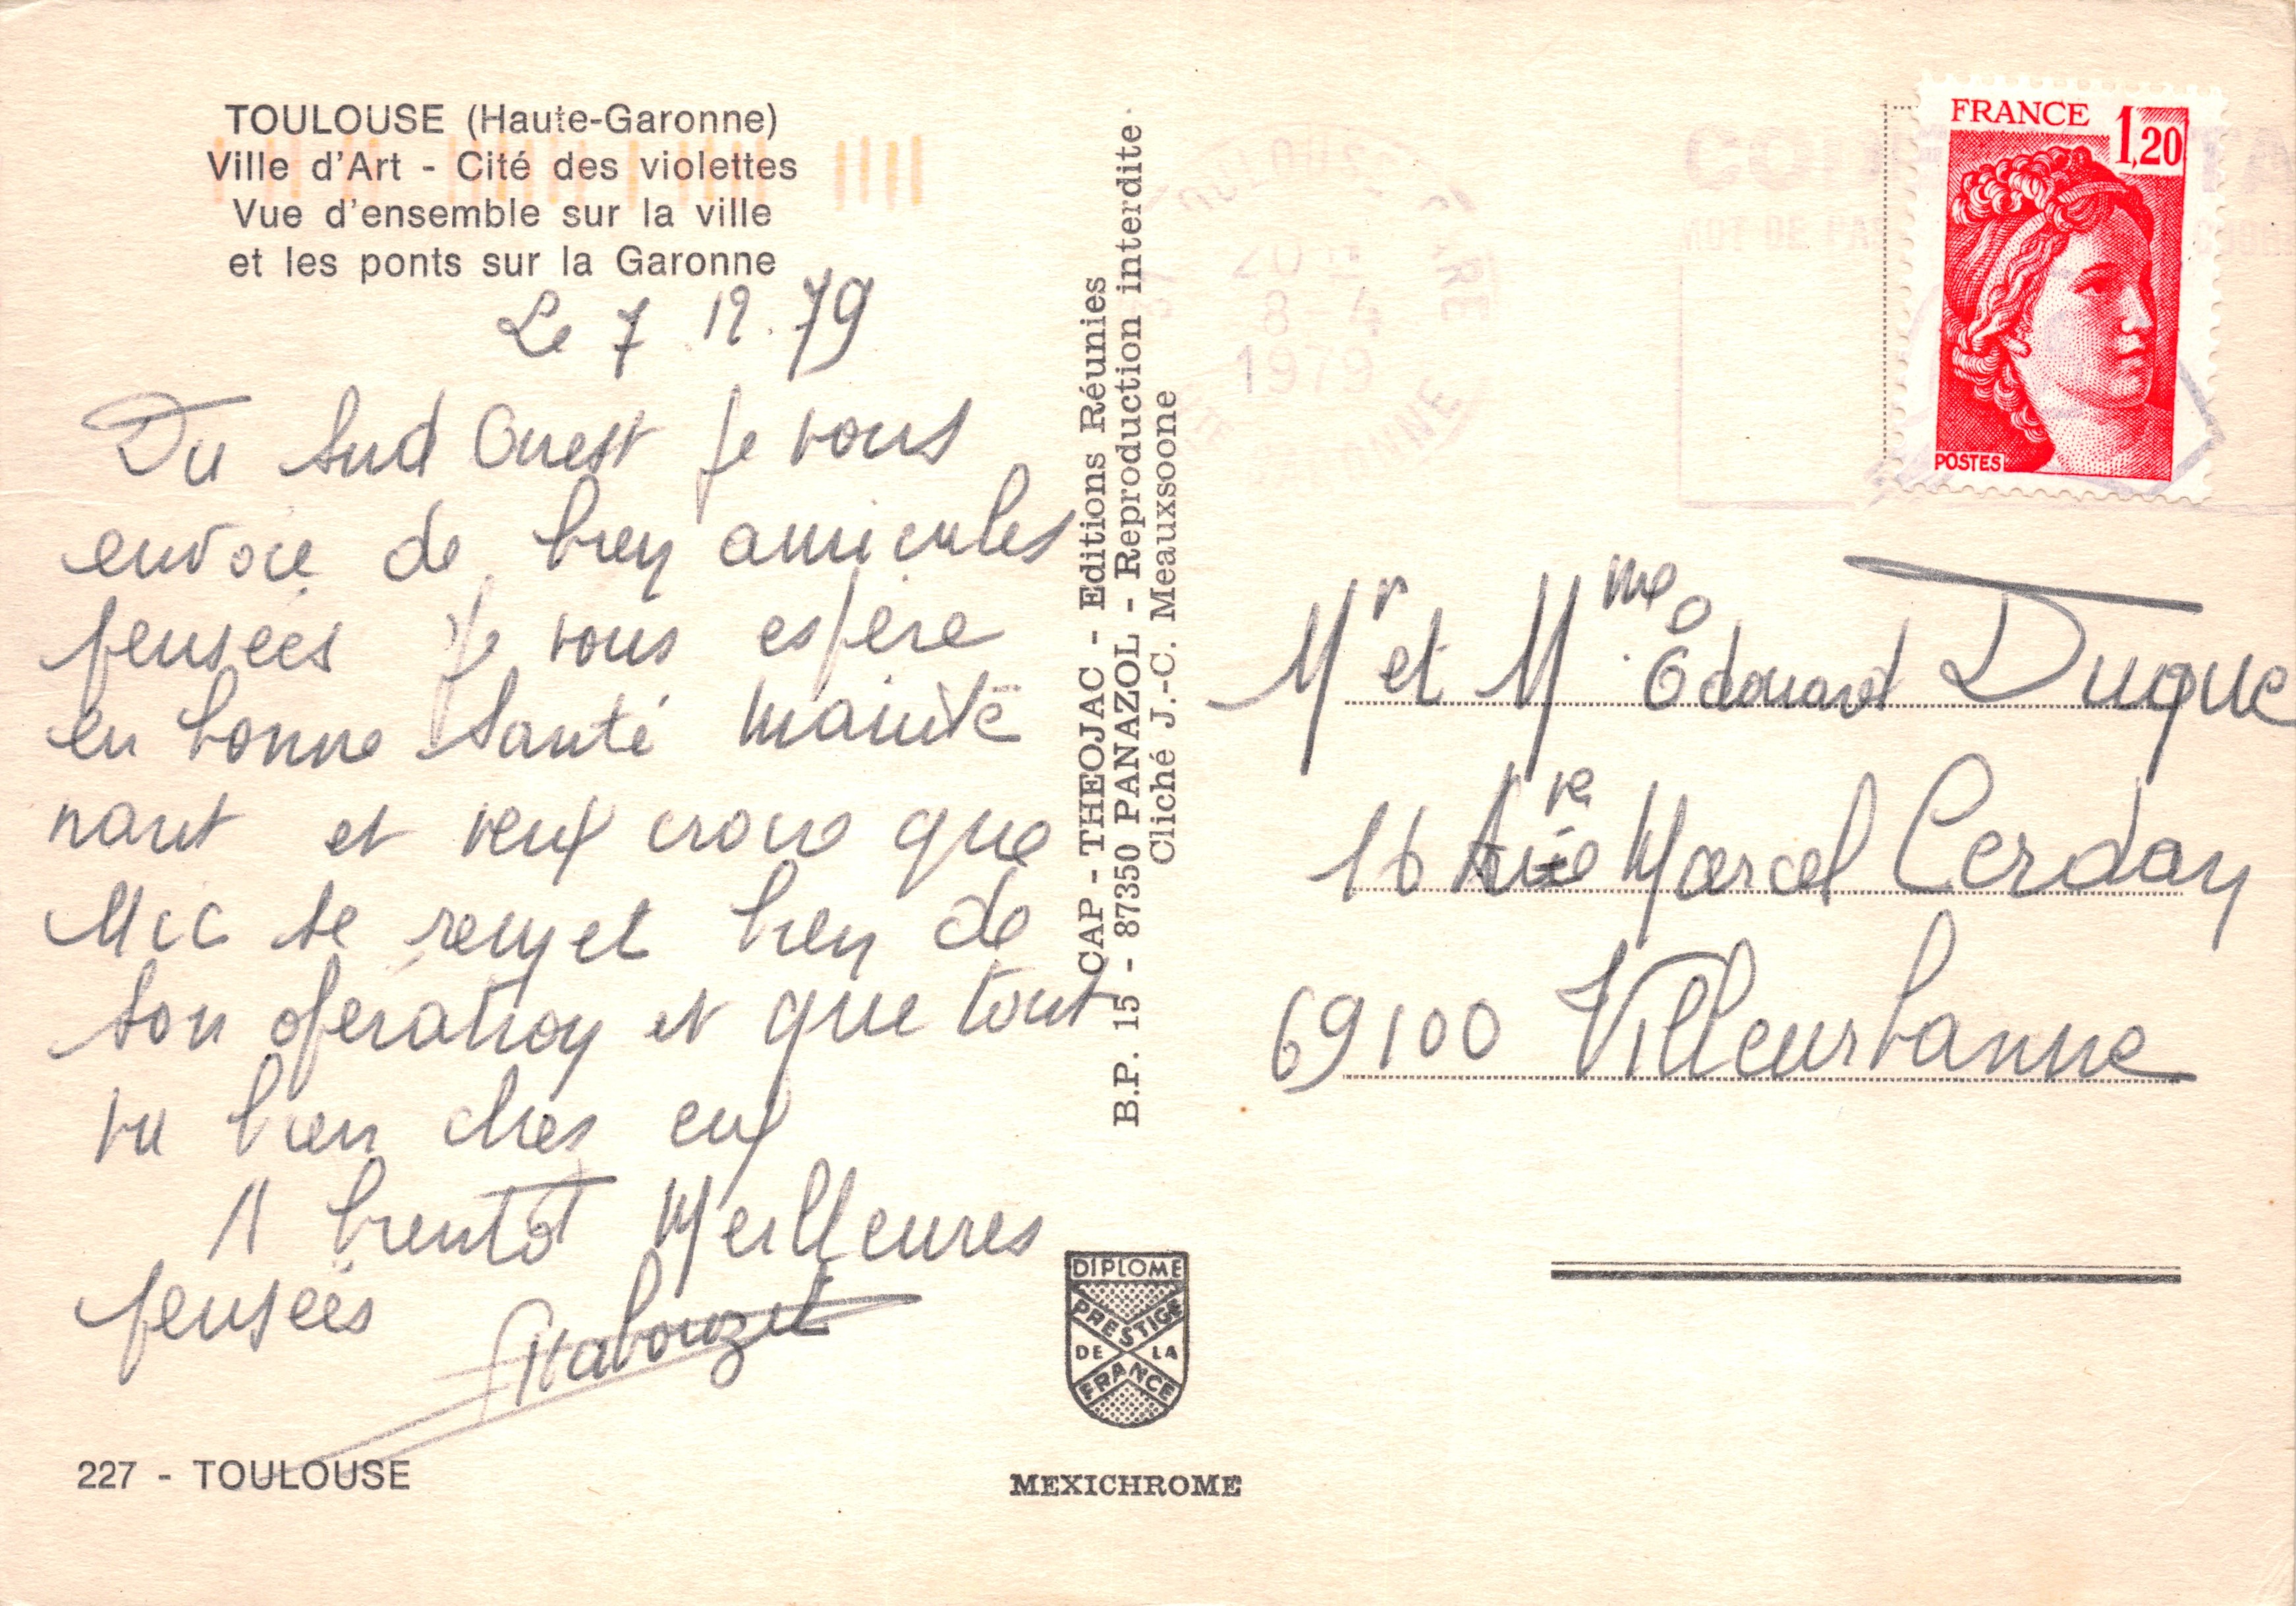 TOULOUSE (Haute-Garonne)
Ville d'Art - Cité des violettes
Vue d'ensemble sur la ville
et les ponts sur la Garonne
Le 7 12. 79
Du Sud Ouest je vous
envoie de bien amicales
pensées je vous espère
en bonne Santé mainte
nant et veux croire que
Mic se remet bien de
son opération et que tout
va bien chez eux
A bientôt Meilleures
pensées
227 - TOULOUSE
CAP - THEOJAC - Editions Réunies
B.P. 15 - 87350 PANAZOL - Reproduction interdite
Cliché J.-C. Meauxsoone
DIPLOME
PRESTIGE
DE LA
FRANCE
MEXICHROME
20 H
8 - 4
1979
FRANCE 1,20
POSTES
Mr et Mme Edouard Duque
16 Avie re Marcel Cerdan
69100 Villeurbanne